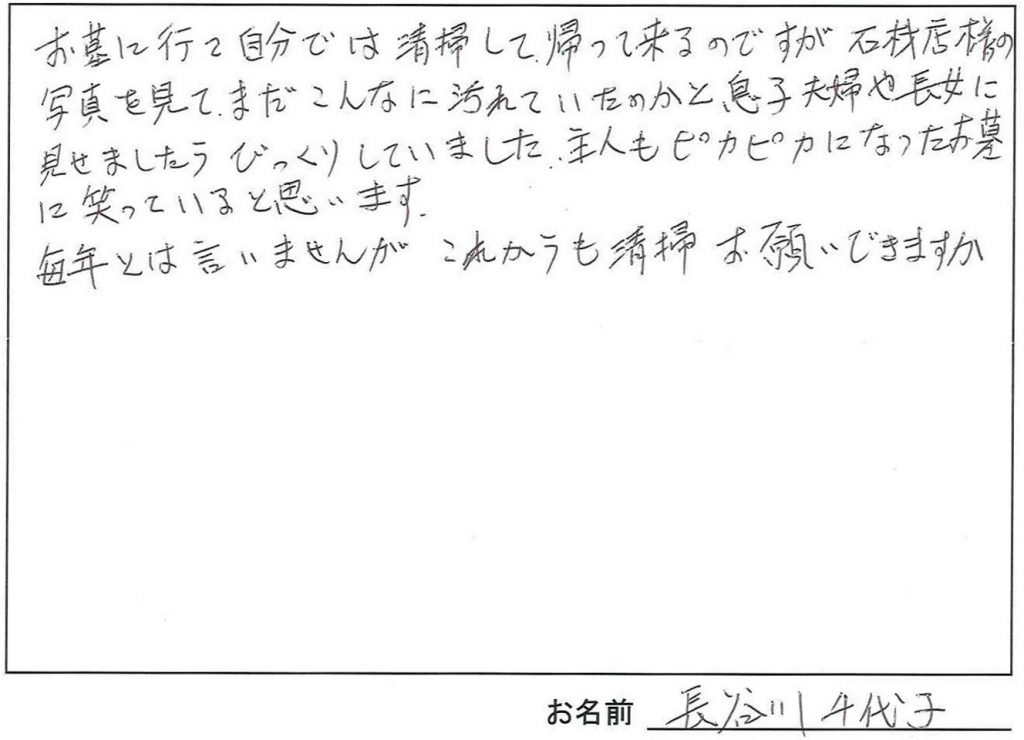 お墓に行て自分では清掃して、帰って来るのですが石材店様の
写真を見て、まだこんなに汚れていたのかと息子夫婦や長女に
見せましたらびっくりしていました、主人もピカピカになったお墓
に笑っていると思います。
毎年とは言いませんが これからも清掃 お願いできますか
お名前 長谷川千代子